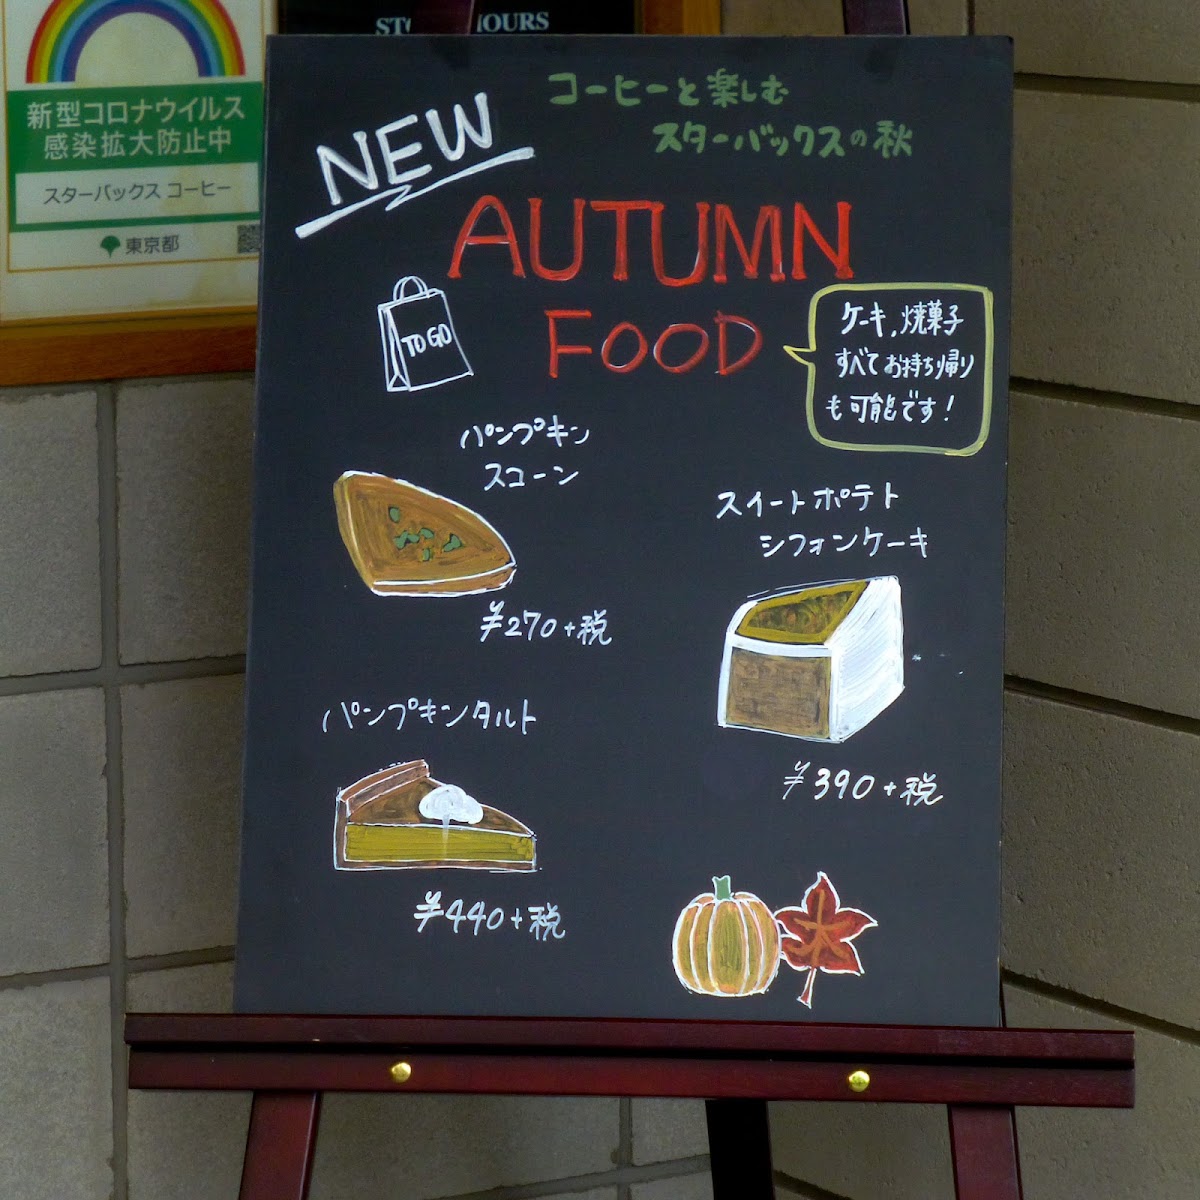 STORE HOURS
新型コロナウイルス
感染拡大防止中
スターバックス コーヒー
東京都
コーヒーと楽しむ
スターバックスの秋
NEW
AUTUMN
FOOD
TO GO
ケーキ,焼菓子
すべてお持ち帰り
も可能です!
パンプキン
スコーン
¥270+税
スイートポテト
シフォンケーキ
¥390+税
パンプキンタルト
¥440+税